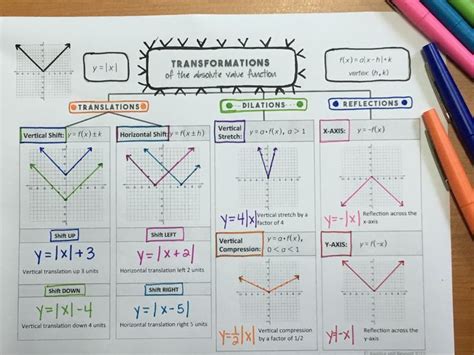 y=|x|
TRANSFORMATIONS
of the absolute value function
f(x)=a|x-h|+k
vertex (h,k)
TRANSLATIONS
DILATIONS
REFLECTIONS
Vertical Shift: y=f(x)±k
Shift UP
y=|x|+3
Vertical translation up 3 units
Shift DOWN
y=|x|-4
Vertical translation down 4 units
Horizontal Shift: y=f(x±h)
Shift LEFT
y=|x+2|
Horizontal translation left 2 units
Shift RIGHT
y=|x-5|
Horizontal translation right 5 units
Vertical
Stretch: y=a•f(x), a>1
y=4|x|
Vertical stretch by a
factor of 4
Vertical
Compression: y=a•f(x),
0<a<1
y=1/2|x|
Vertical compression
by a factor of 1/2
X-AXIS: y=-f(x)
y=-|x|
Reflection across the
x-axis
Y-AXIS: y=f(-x)
y=|-x|
Reflection across the
y-axis